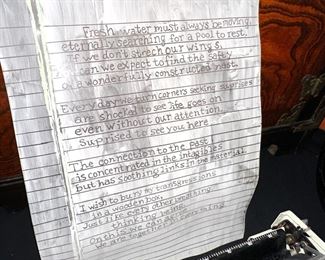 Fresh water must always be moving,
eternally searching for a pool to rest.
If we don't stretch our wings
can we expect to find the safety
of a wonderfully constructed nest.
Every day we turn corners seeking suprises
are shocked to see life goes on
even without our attention.
Suprised to see you here
The connection to the past
is concentrated in the intangibles
but has soothing links in the material
I wish to bury my transmissions
in a wooden box
Just like every other breathing
thinking being
One box we can
we are together